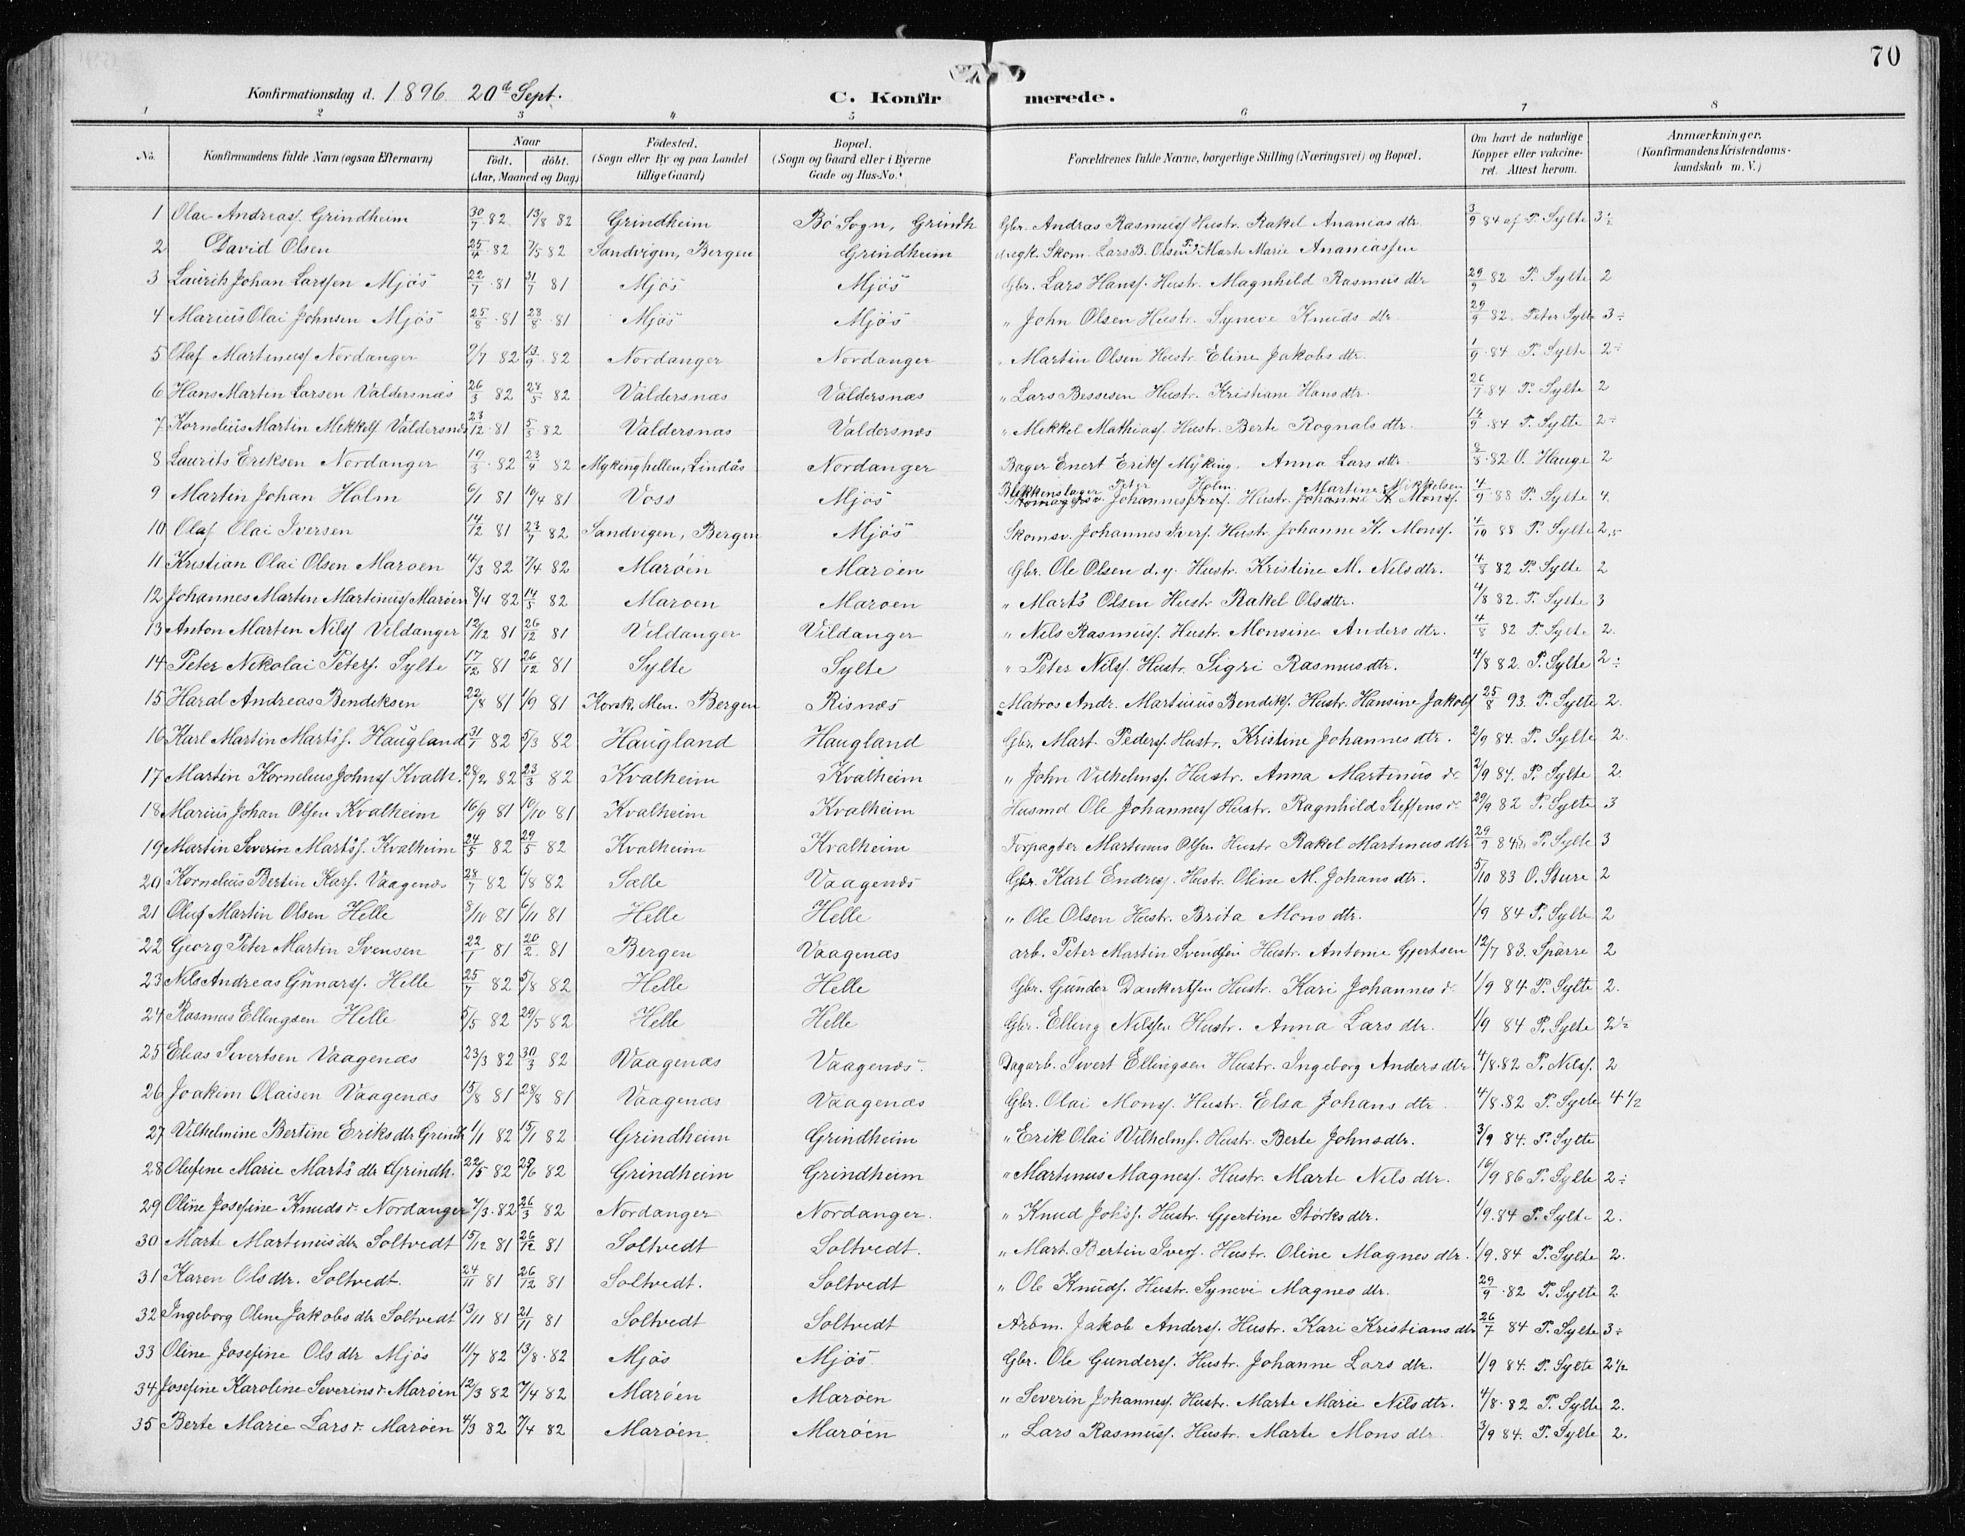 70
Konfirmationsdag d. 1896 20de Sept.
C. Konfirmerede.
1 2 3 4 5 6 7 8
No. Konfirmandens fulde Navn (ogsaa Efternavn) Naar født. døbt. (Aar, Maaned og Dag) Fødested. (Sogn eller By og paa Landet tillige Gaard) Bopæl. (Sogn og Gaard eller i Byerne Gade og Hus-No.) Forældrenes fulde Navne, borgerlige Stilling (Næringsvei) og Bopæl. Om havt de naturlige Kopper eller vakcineret. Attest herom. Anmærkninger. (Konfirmandens Kristendomskundskab m. V.)
1 Olai Andreasf. Grindheim 30/7 82 13/8 82 Grindheim Bø Sogn, Grindh Gbr. Andras Rasmusf Hustr. Rakel Ananias dtr 3/9 84 af P. Sylte 3÷
2 David Olsen 25/4 82 7/5 82 Sandvigen, Bergen Grindheim Skom. Lars B. Olsen Marte Marie Ananiassen
3 Laurits Johan Larssen Mjøs 22/7 81 31/7 81 Mjøs Mjøs Gbr. Lars Hansf. Hustr. Magnhild Rasmus dtr 29/9 82 P. Sylte 2
4 Marius Olai Johnsen Mjøs 25/8 81 28/8 81 Mjøs Mjøs " John Olsen Hustr. Syneve Knuds dtr 29/9 82. Peter Sylte 3÷
5 Olaf Martinusf Nordanger 9/7 82 13/9 82 Nordanger Nordanger " Martin Olsen Hustr. Eline Jakobs dtr. 1/9 84 P. Sylte 2÷
6 Hans Martin Larsen Valdersnæs 26/3 82 24/5 82 Valdersnæs Valdersnæs " Lars Bessesen Hustr. Kristiane Hans dtr. 26/7 84 P. Sylte 2
7 Kornelius Martin Mikkelf Valdersnæs 23/12 81 5/3 82 Valdersnæs Valdersnæs " Mikkel Mathiasf. Hustr. Berte Rognals dtr. 14/9 84 P. Sylte 2÷
8 Laurits Eriksen Nordanger 19/3 82 23/4 82 Mykinghellen, Lindås Nordanger Bager Enert Eriksf Myking, Anna Lars dtr. 8/8 82 O. Hauge 2
9 Martin Johan Holm 6/1 81 10/4 81 Voss Mjøs Blikkenslager Peter Holm Martine Mikkelsen 4/9 88 P. Sylte 4.
Johannes Iverf. Hustr. Johanne K. Monsf.
10 Olaf Olai Iversen 14/12 81 23/7 82 Sandvigen, Bergen Mjøs Skomv. Johannes Iverf. Hustr Johanne K. Monsf. 4/10 88 P. Sylte 2
11 Kristian Olai Olsen Marøen 4/3 82 7/4 82 Marøen Marøen Gbr. Ole Olsen d. y. Hustr. Kristine M. Nils dtr. 4/8 82 P. Sylte 2
12 Johannes Martin Martinusf Marøen 8/4 82 14/5 82 Marøen Marøen " Marts Olsen Hustr Rakel Olsdtr. 4/8 82. P. Sylte 3
13 Anton Martin Nilsf Vildanger 12/12 81 26/12 81 Vildanger Vildanger " Nils Rasmusf. Hustr. Monsine Anders dtr. 4/8 82 P. Sylte 2.
14 Peter Nikolai Petersf. Sylte 17/12 81 26/12 81 Sylte Sylte " Peter Nilsf. Hustr. Sigri Rasmusdtr. 4/8 82 P. Sylte 2÷
15 Haral Andreas Bendiksen 22/8 81 1/9 81 Korsk. Men. Bergen Risnæs Matros Andr. Martinius Bendiksf. Hustr. Hansine Jakobsf 25/8 93. P. Sylte 2.
16 Karl Martin Martsf. Haugland 31/1 82 5/3 82 Haugland Haugland Gbr. Mart. Pedersf. Hustr. Kristine Johannes dtr. 2/9 84. P. Sylte 2.
17 Martin Kornelius Johnsf Kvalh. 28/2 82 23/3 82 Kvalheim Kvalheim " John Vilhelmsf. Hustr. Anna Martinus dr 2/9 84. P. Sylte 2.
18 Marius Johan Olsen Kvalheim 16/9 81 10/10 81 Kvalheim Kvalheim Husmd Ole Johannesf Hustr. Ragnhild Steffens dr 29/9 82 P. Sylte 3
19 Martin Severin Martsf. Kvalheim 24/5 82 29/5 82 Kvalheim Kvalheim Forpagter Martinus Olsen Hustr Rakel Martinus dtr 29/9 84 P. Sylte 3
20 Kornelius Bertin Karlf. Vaagenæs 28/7 82 6/8 82 Sælle Vaagenæs Gbr. Karl Endresf. Hustr. Oline M. Johans dtr. 5/10 83 O. Sture 2
21 Oluf Martin Olsen Helle 8/10 81 6/11 81 Helle Helle " Ole Olsen Hustr. Brita Mons dtr. 1/9 84 P. Sylte 2
22 Georg Peter Martin Svensen 22/1 81 20/2. 81 Bergen Vaagenæs arb. Peter Martin Svendsen Hustr. Antonie Gjertsen 12/7 83. Sparre 2
23 Nils Andreas Gunarsf. Helle 25/7 82 5/8 82 Helle Helle Gbr. Gunder Dankertsen Hustr. Kari Johannes dr 1/9 84 P. Sylte 2.
24 Rasmus Ellingsen Helle 5/5 82 29/5 82 Helle Helle Gbr. Elling Nilssen Hustr. Anna Lars dtr. 1/9 84 P. Sylte 2½
25 Elias Sivertsen Vaagenæs 23/3 82 30/3 82 Vaagenæs Vaagenæs Dagarb. Sivert Ellingsen Hustr. Ingeborg Anders dtr 4/8. 82 P. Nilsf. 2
26 Joakim Olaisen Vaagenæs 15/8 81 28/8 81 Vaagenæs Vaagenæs Gbr. Olai Monsf. Hustr. Elsa Johans dtr. 4/8. 82 P. Sylte 4½
27 Vilhelmine Bertine Eriks dtr Grindh 1/1 82 15/1 82 Grindheim Grindheim " Erik Olai Vilhelmf. Hustr. Berte Johnsdtr. 3/9 84. P. Sylte
28 Olufine Marie Marts dtr Grindh. 22/5 82 29/6 82 Grindheim Grindheim " Martinus Magnesf. Hustr. Marte Nils dtr. 16/9 86 P. Sylte 2÷
29 Oline Josefine Knuds dr. Nordanger 7/3. 82 26/3 82 Nordanger Nordanger. " Knud Joksf. Hustr. Gjertine Størks dtr. 1/9. 84 P. Sylte 2.
30 Marte Martinus dtr Soltvedt 15/12 81 26/12 81 Soltvedt Soltvedt. " Mart. Bertin Iverf. Hustr. Oline Magnes dtr. 1/9. 84 P. Sylte 2.
31 Karen Ols dtr. Soltvedt. 24/11 81 26/12 81 Soltvedt. Soltvedt " Ole Knudsf. Hustr. Syneve Magnes dtr. 29/9. 82 P. Sylte 2
32 Ingeborg Oline Jakobs dtr Soltvedt 13/11 81 21/11 81 Soltvedt Soltvedt Arbm. Jakob Andersf. Hustr. Kari Kristians dtr 26/7 84 P. Sylte 3÷
33 Oline Josefine Ols dtr Mjøs 11/7 82 13/8. 82 Mjøs Mjøs Gbr. Ole Gundersf. Hustr. Johanne Lars dtr. 1/9 84. P. Sylte 2½
34 Josefine Karoline Severins dr. Marøen 12/3 82 7/4 82 Marøen Marøen " Severin Johannesf. Hustr. Marte Marie Nils dtr. 4/8. 82 P. Sylte 2.
35 Berte Marie Lars dr. Marøen 4/3 82 7/4 82 Marøen. Marøen " Lars Rasmusf. Hustr. Marte Mons dtr 3/9 84. P. Sylte 2.